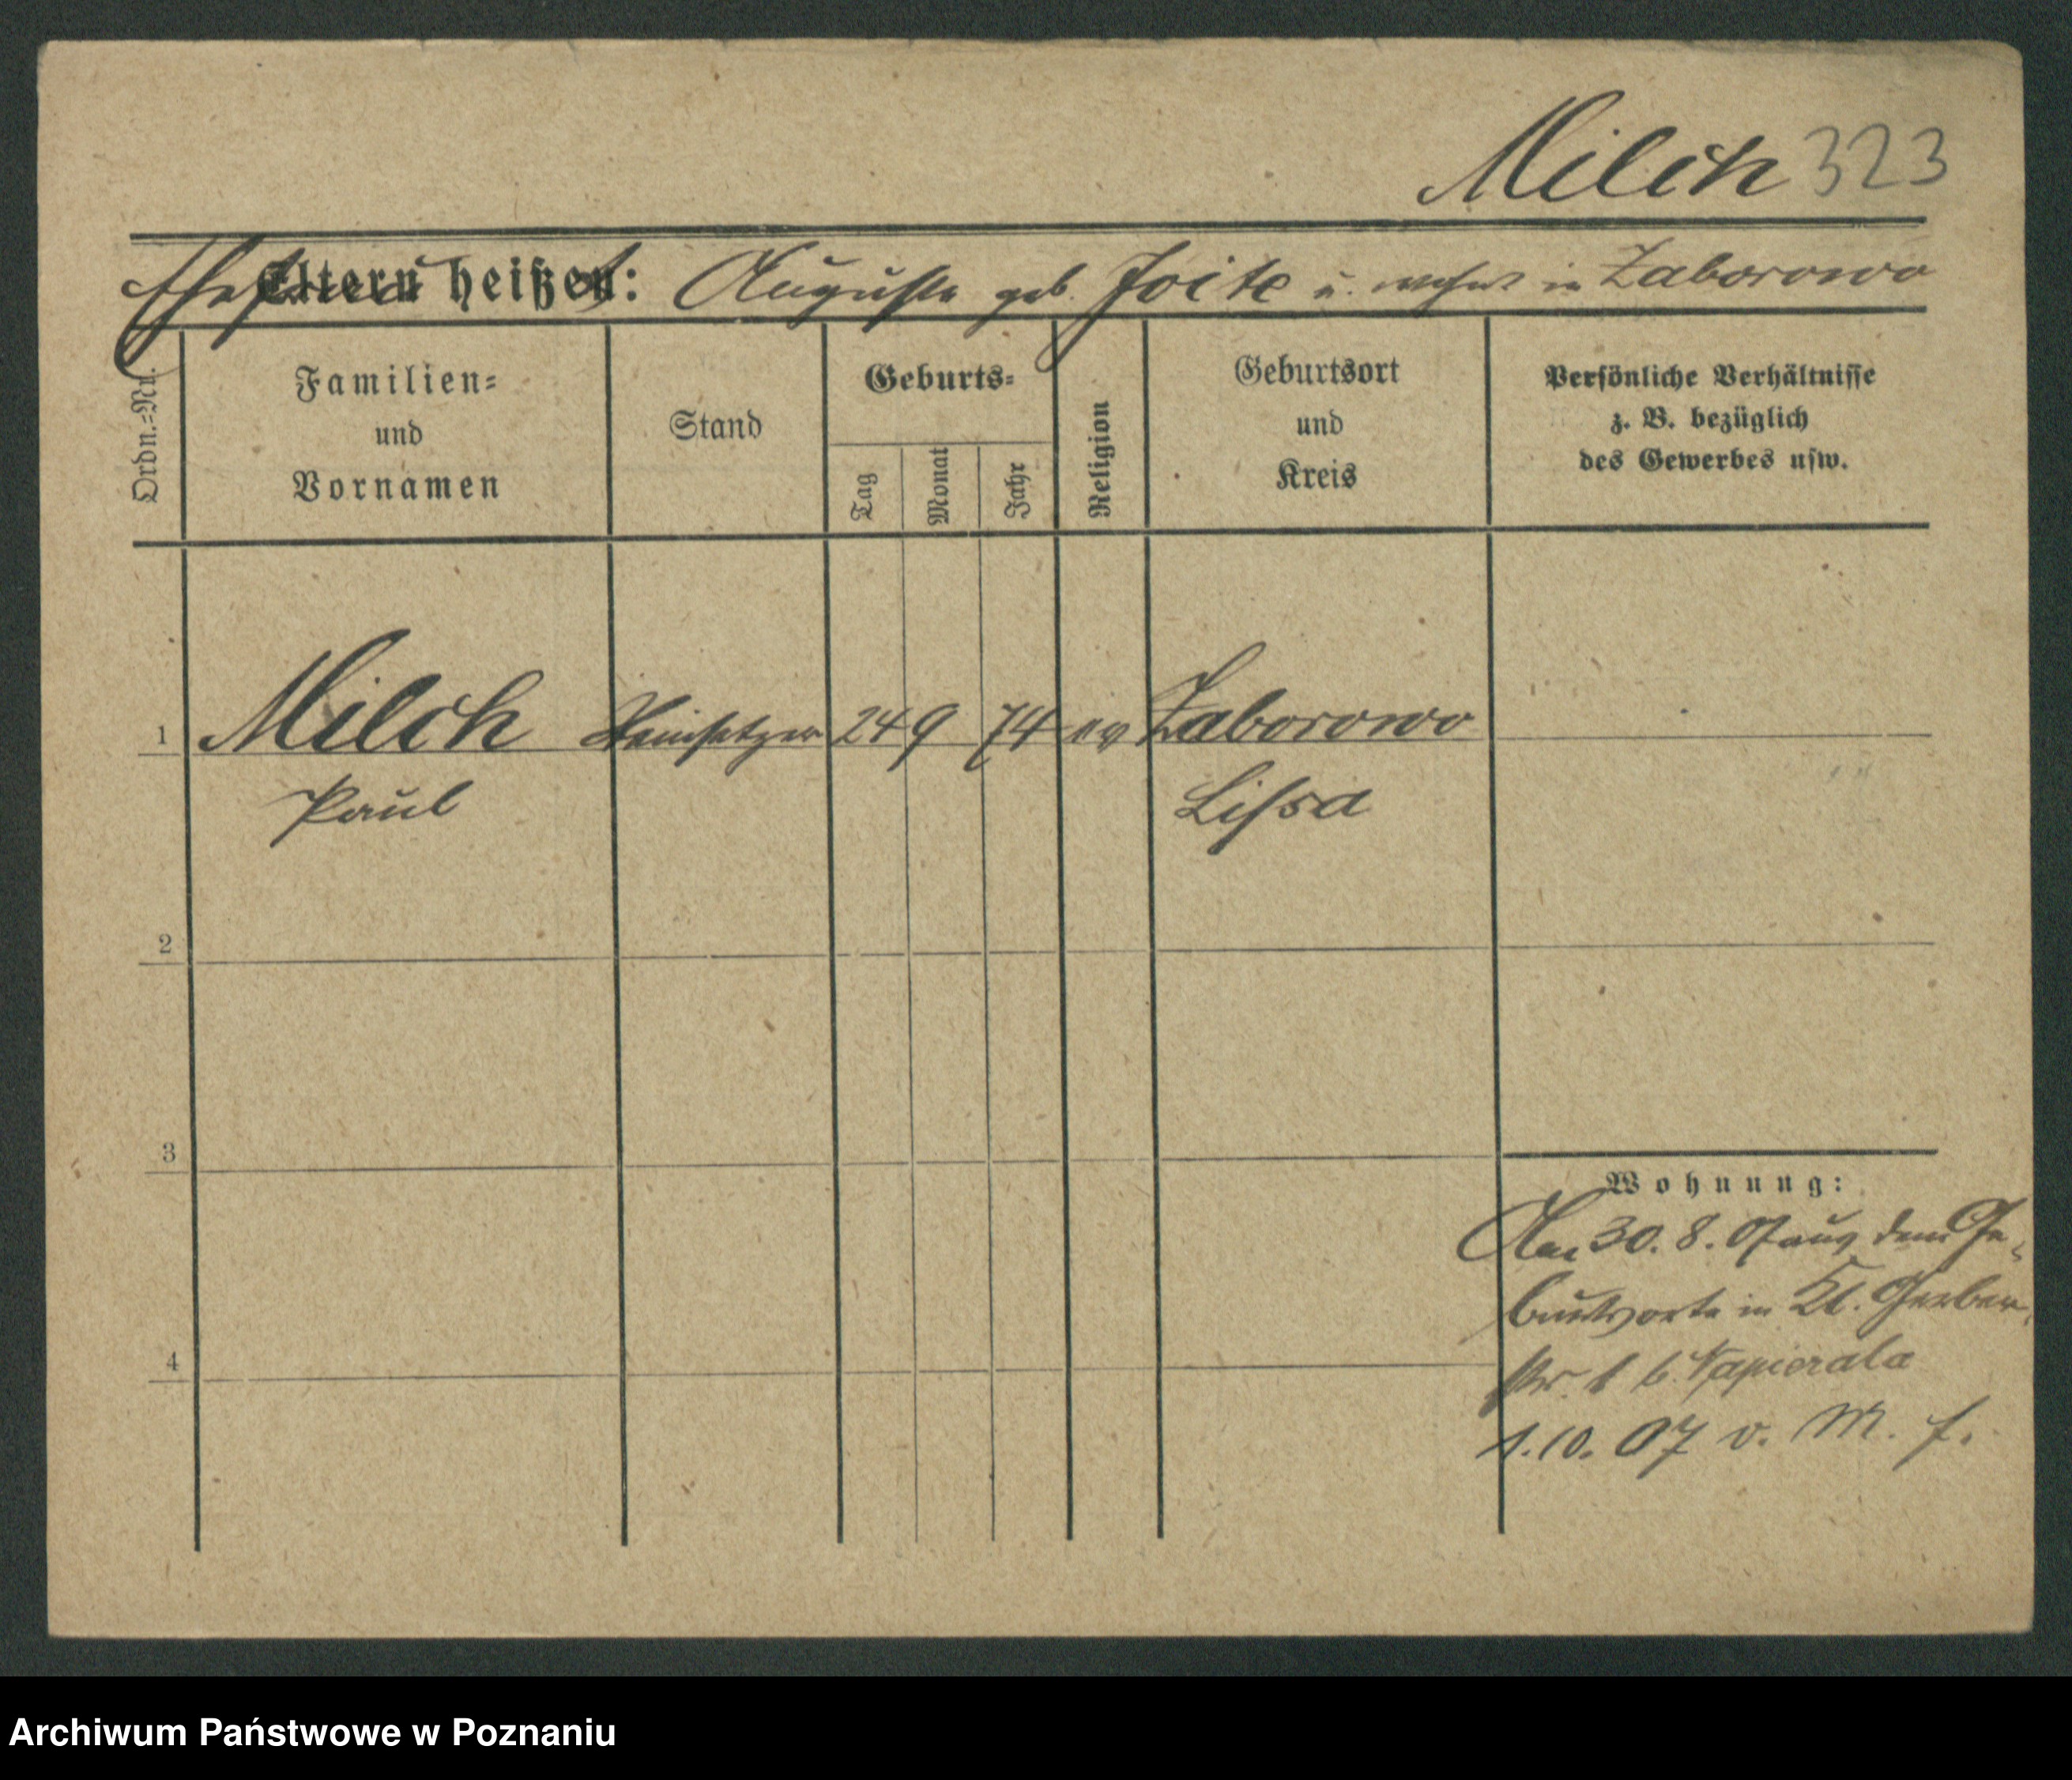 Milch 323
Ehefrau heißt: Auguste geb. Joite u. wohnt in Zaborowo
Eltern heißen:
Ordn.=Nr.
Familien=
und
Vornamen
Stand
Geburts=
Tag
Monat
Jahr
Religion
Geburtsort
und
Kreis
Persönliche Verhältnisse
z. B. bezüglich
des Gewerbes usw.
1 Milch Steinsetzer 24 9 74 ev Zaborowo
Paul Lissa
2
3
4
Wohnung:
Am 30. 8. 07 aus dem Ge-
burtsorte in Kl. Gerber-
str. 1 b. Napierala
1.10. 07 v. M. f.
Archiwum Państwowe w Poznaniu